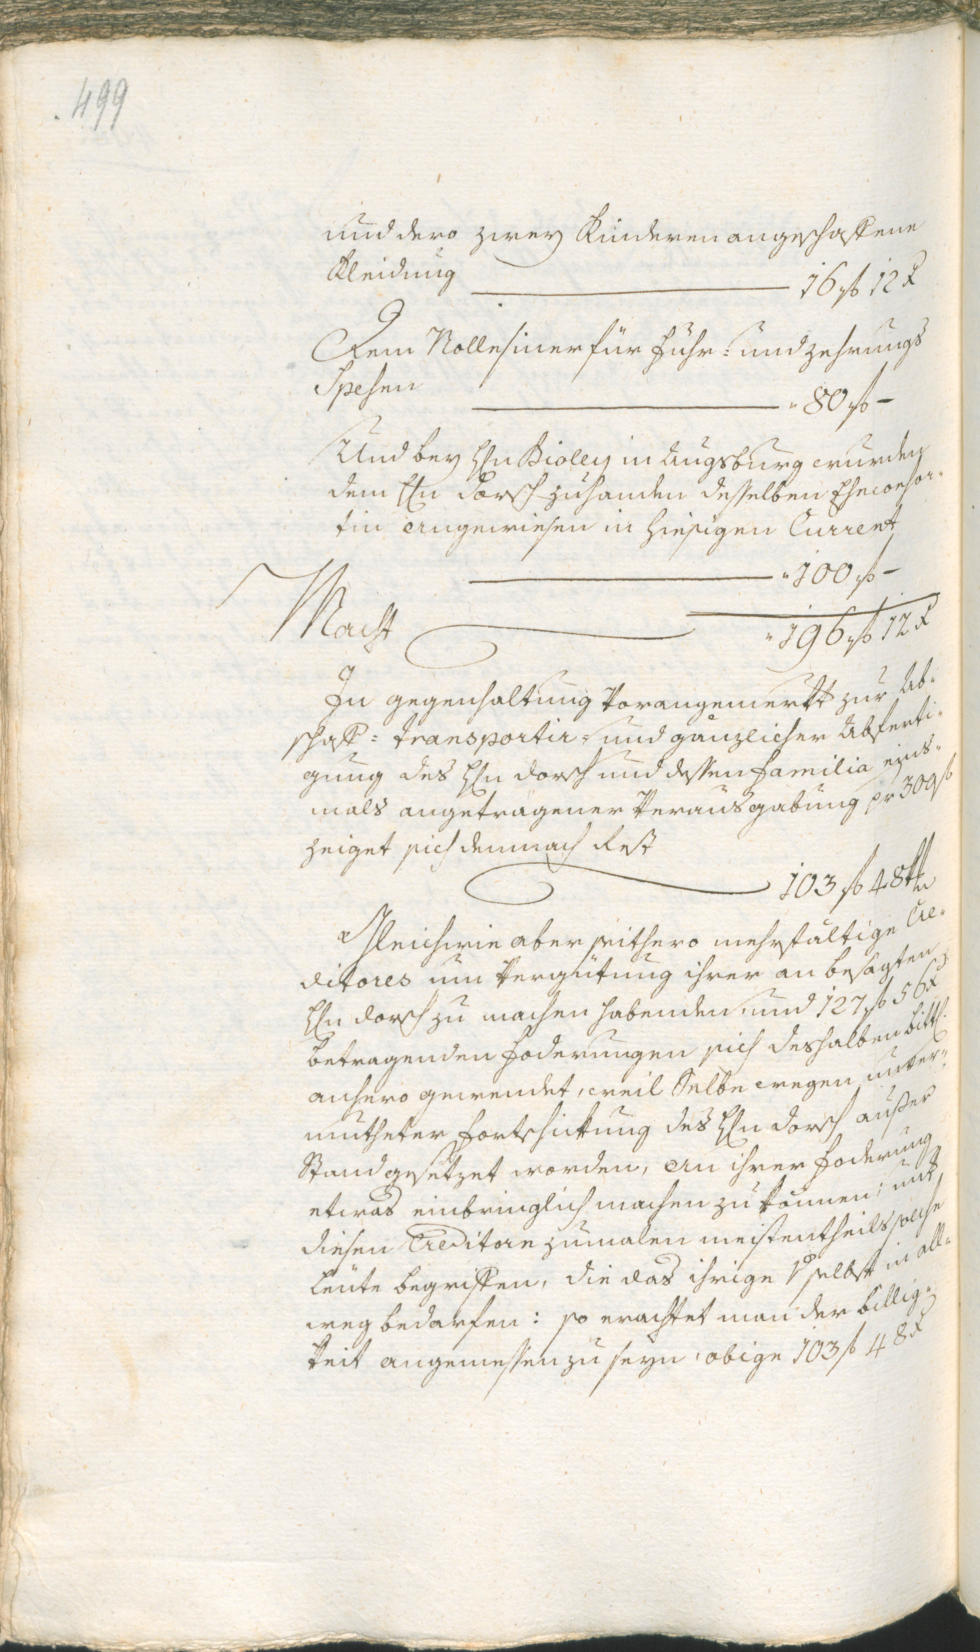 499
und dero zwey Kinderen angeschaffene
Kleidung 16 f 12 x
Dem Nollesiner für Fuhr= und zehrungs
Spesen 80 f –
Und bey Hn Bioley in Augsburg wurden
dem Hn Dorsch zuhanden desselben Eheconsor=
tin angewiesen in hiesigen Current
100 f –
Macht 196 f 12 x
In gegenhaltung Vorangemerkt zur Ab=
schaff= transportir= und gänzlicher Abferti=
gung des Hn Dorsch und dessen Familia eins=
mals angetragener Verausgabung pr 300 f
zeiget sich demnach Rest
103 f 48 x
Gleichwie aber seithero mehrfältige Cre=
ditores um Vergütung ihrer an besagten
Hn Dorsch zu machen habenden, und 127 f 56 x
betragenden Foderungen sich deshalben bittl.
anhero gewendet, weil Selbe wegen unver=
mutheter Fortschickung des Hn Dorsch außer
Stand gesetzet worden, an ihrer Foderung
etwas einbringlich machen zu können; unt
diesen Creditorn zumalen meistentheils solche
Leute begriffen, die das ihrige selbst in all=
weg bedarfen: so erachtet man der billig=
keit angemessen zu seyn, obige 103 f 48 x